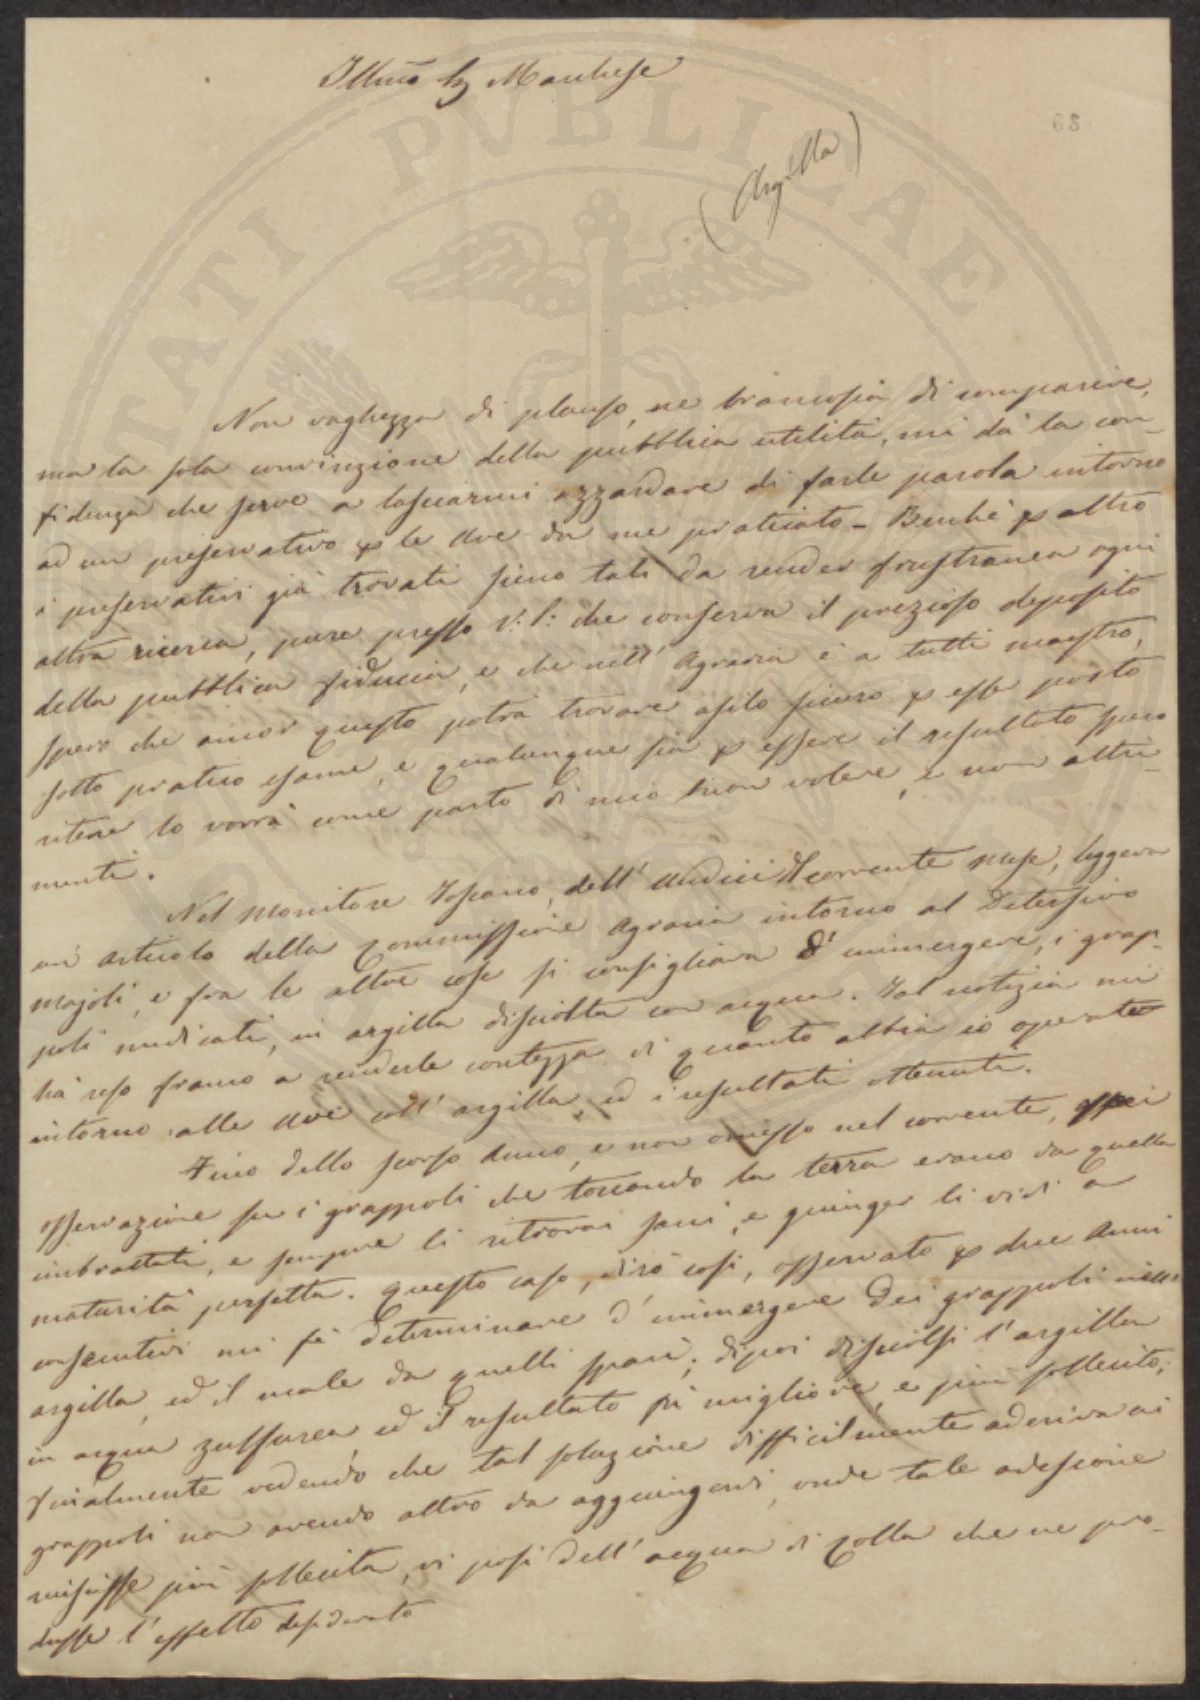 Illmo Sig Marchese
68
(Argilla)
Non vaghezza di plauso, ne bramosia di comparire,
ma la sola convinzione della pubblica utilità, mi dà la con-
fidenza che serve a lasciarmi azzardare di farle parola intorno
ad un preservativo p le Uve da me praticato - Benchè p altro
i preservativi già trovati sieno tali da render frustranea ogni
altra ricerca, pure presso V: S: che conserva il prezioso deposito
della pubblica fiducia, e che nell' Agraria è a tutti maestro,
spero che ancor questo potrà trovare asilo sicuro p esser posto
sotto pratico esame, e qualunque sia p essere il resultato spero
ritener lo vorrà come parto di mio buon volere, e non altri-
menti.
Nel Monitore Toscano, dell' Undici corrente Mese, leggeva
un' articolo della Commissione Agraria intorno al Detersivo
Majoli, e fra le altre cose si consigliava d' immergere, i grap-
poli medicati, in argilla disciolta con acqua. Tal notizia mi
ha reso franco a renderle contezza di quanto abbia io operato
intorno alle Uve coll' argilla, ed i resultati ottenuti.
Fino dello scorso Anno, e non omisso nel corrente,
osservazione su i grappoli che toccando la terra erano da quella
imbrattati, e sempre li ritrovai sani, e giunger li vidi a
maturità perfetta. Questo caso, dirò così, osservato p due Anni
consecutivi mi fè determinare d' immergere dei grappoli nell'
argilla, ed il male da quelli sparì; dipoi disciolsi l' argilla
in acqua zulfurea, ed il resultato fù migliore, e più sollecito;
finalmente vedendo che tal soluzione difficilmente aderiva ai
grappoli non avendo altro da aggiungervi, onde tale adesione
riuscisse più sollecita, vi posi dell' acqua di colla che ne pro-
dusse l' effetto desiderato